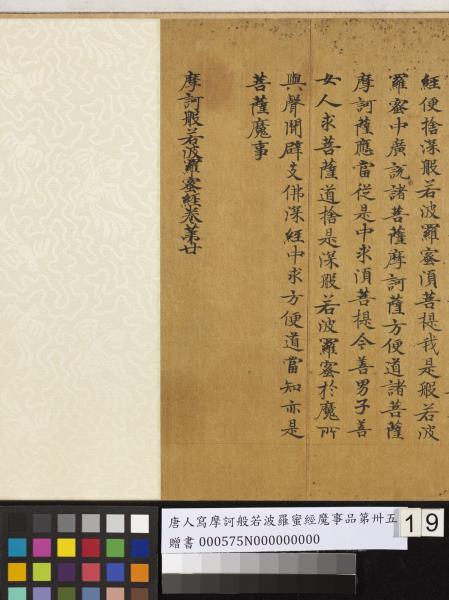 經便捨深般若波羅蜜湏菩提我是般若波
羅蜜中廣說諸菩薩摩訶薩方便道諸菩薩
摩訶薩應當從是中求湏菩提今善男子善
女人求菩薩道捨是深般若波羅蜜於魔所
與聲聞辟支佛深經中求方便道當知亦是
菩薩魔事
摩訶般若波羅蜜經卷苐廿
唐人寫摩訶般若波羅蜜經魔事品第卅五
贈書 000575N000000000
19